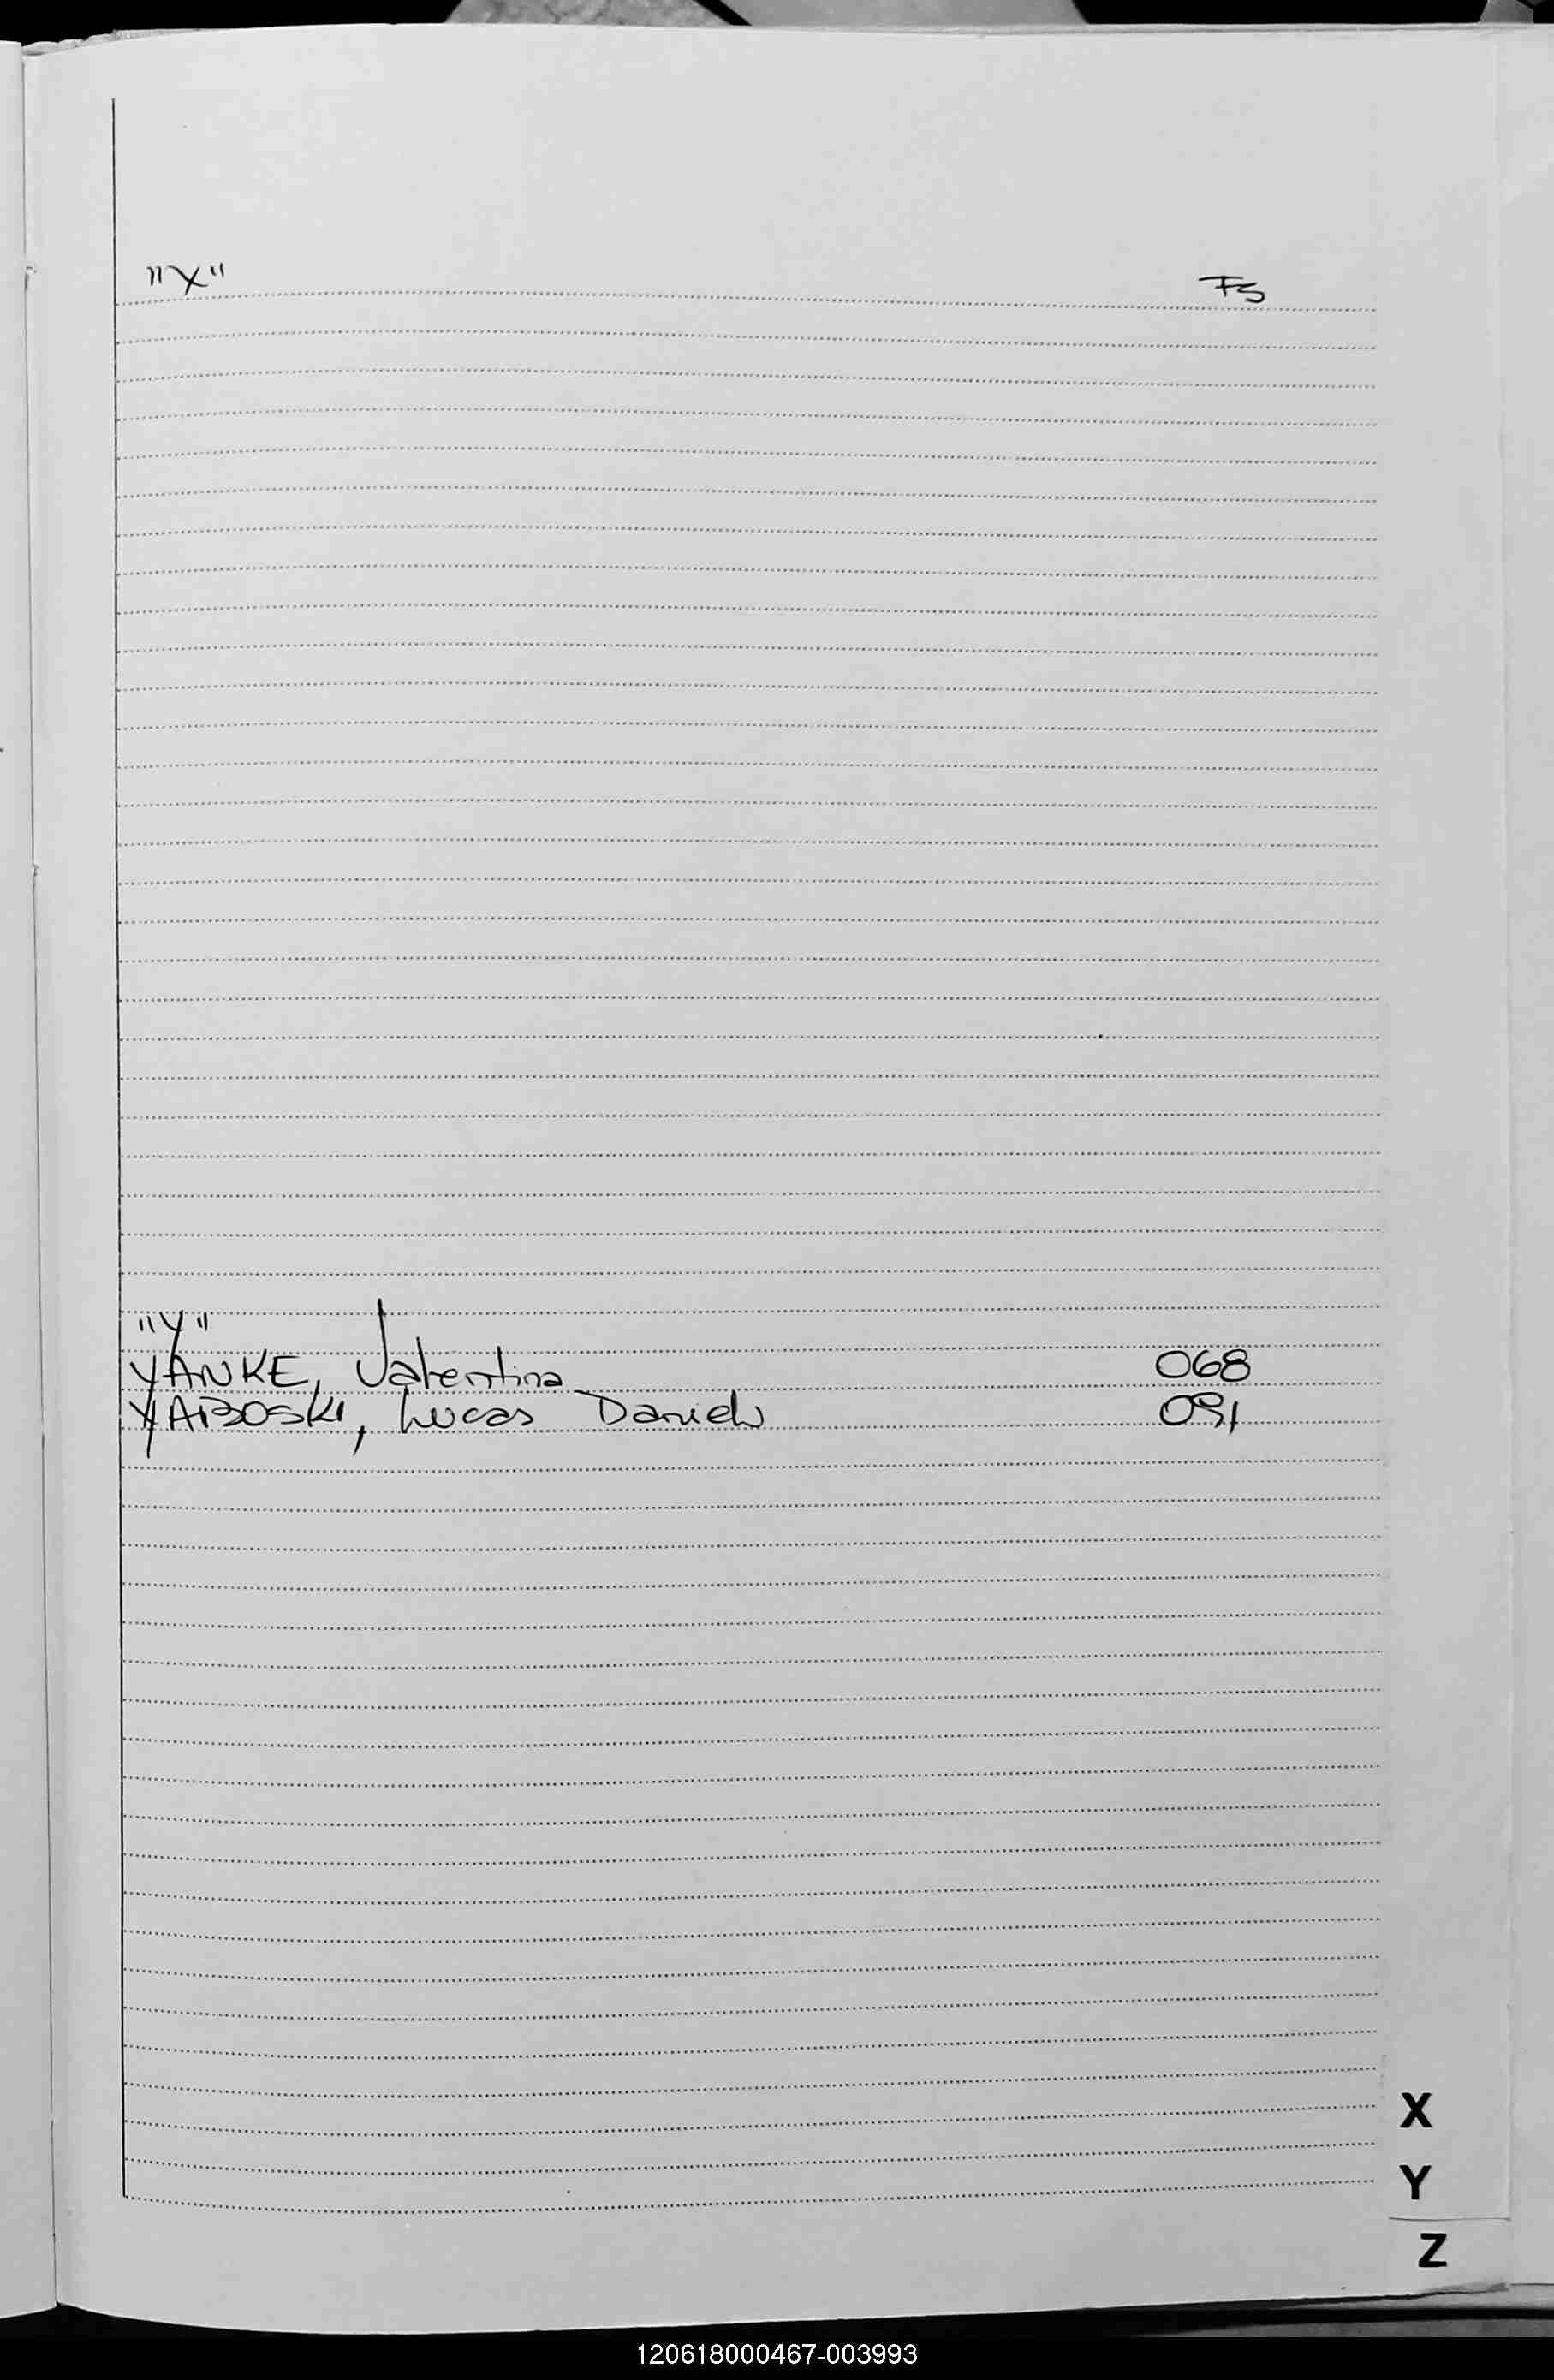 "X" Fs
"Y"
YANKE, Valentina 068
YABOSKI, Lucas Daniel 091
X
Y
Z
120618000467-003993